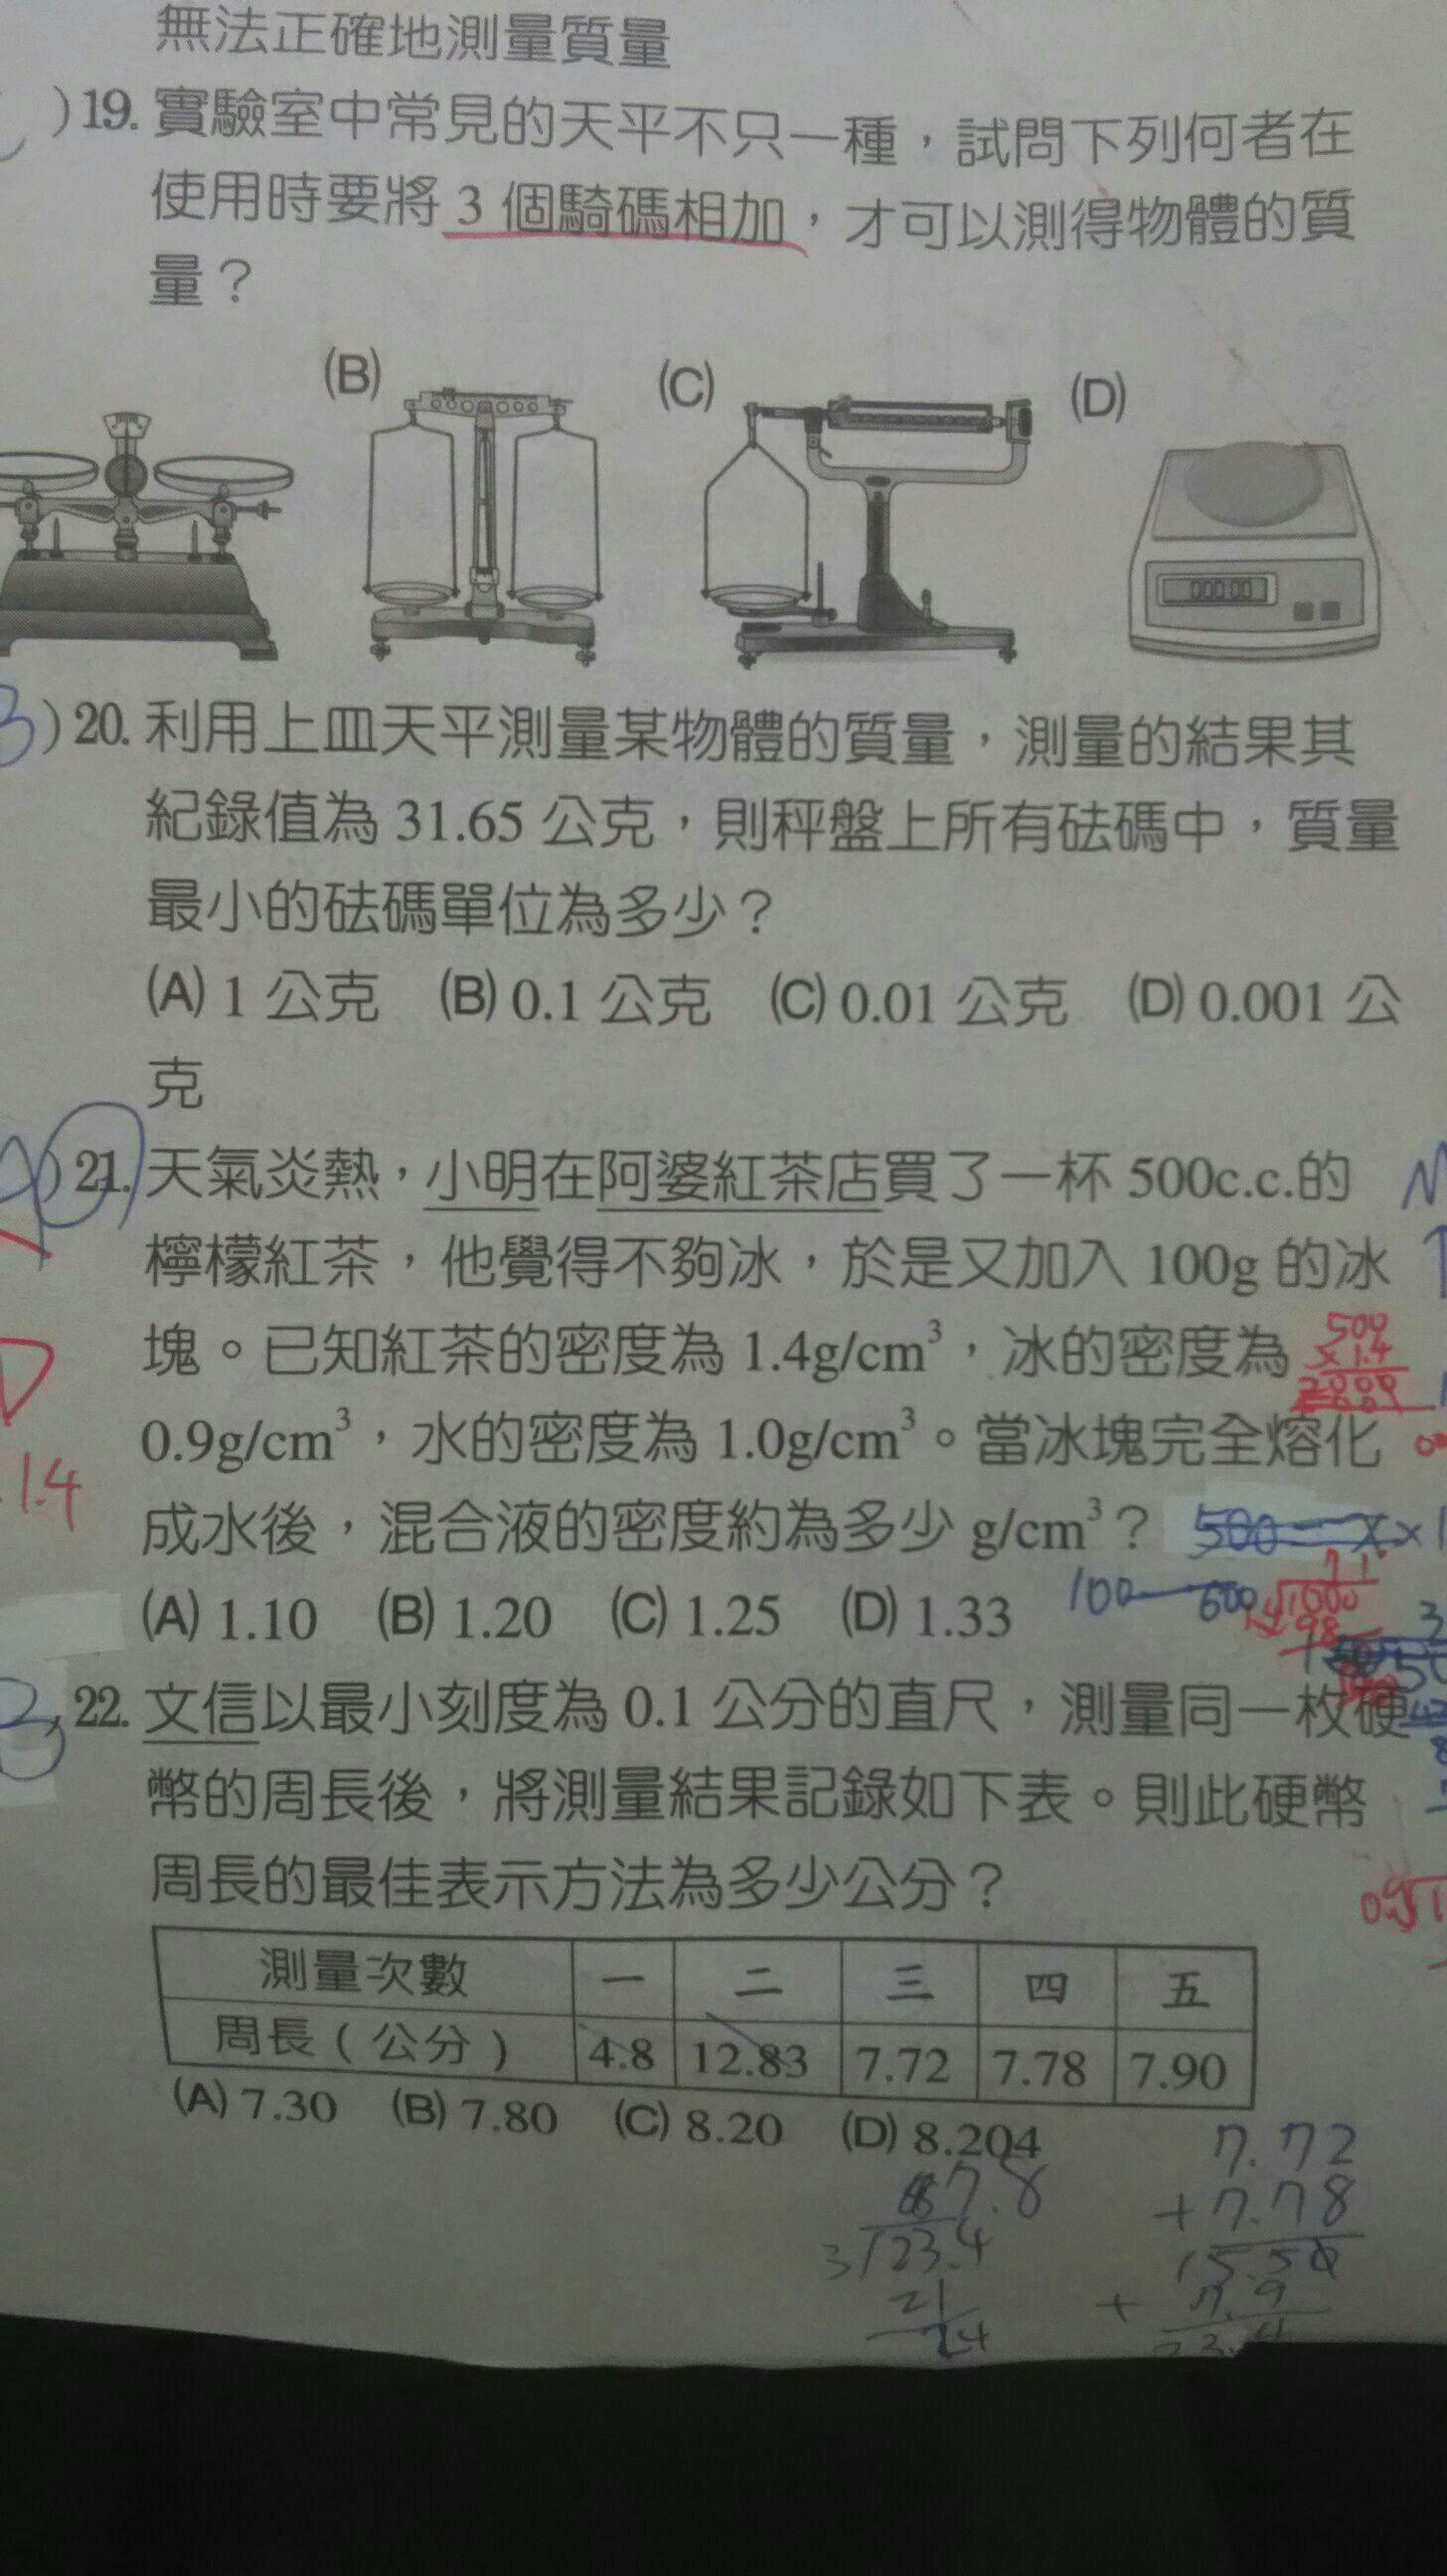 無法正確地測量質量
)19. 實驗室中常見的天平不只一種，試問下列何者在
使用時要將 3 個騎碼相加，才可以測得物體的質
量？
(B) (C) (D)
000.00
3)20. 利用上皿天平測量某物體的質量，測量的結果其
紀錄值為 31.65 公克，則秤盤上所有砝碼中，質量
最小的砝碼單位為多少？
(A) 1 公克 (B) 0.1 公克 (C) 0.01 公克 (D) 0.001 公
克
)21. 天氣炎熱，小明在阿婆紅茶店買了一杯 500c.c.的
檸檬紅茶，他覺得不夠冰，於是又加入 100g 的冰
塊。已知紅茶的密度為 1.4g/cm³，冰的密度為
500
×1.4
D
0.9g/cm³，水的密度為 1.0g/cm³。當冰塊完全熔化
1.4
成水後，混合液的密度約為多少 g/cm³？
(A) 1.10 (B) 1.20 (C) 1.25 (D) 1.33
100 600
71
1000
98
22. 文信以最小刻度為 0.1 公分的直尺，測量同一枚硬
幣的周長後，將測量結果記錄如下表。則此硬幣
周長的最佳表示方法為多少公分？
測量次數 一 二 三 四 五
周長（公分） 4.8 12.83 7.72 7.78 7.90
(A) 7.30 (B) 7.80 (C) 8.20 (D) 8.204
7.72
+7.78
15.50
+ 7.9
23.4
7.8
3 23.4
21
24